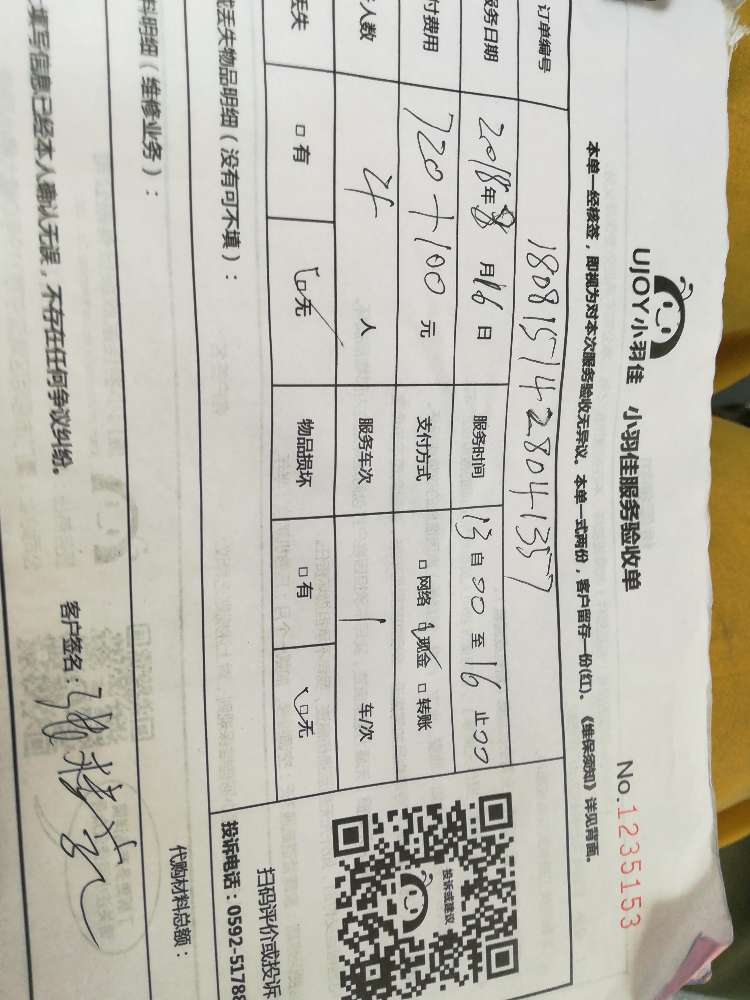 UJOY小羽佳 小羽佳服务验收单
No.1235153
本单一经核签，即视为对本次服务验收无异议。本单一式两份，客户留存一份(红)。《维保须知》详见背面。
订单编号 1808151428041357
服务日期 2018年8月16日 服务时间 13自00至16止00
付费用 720+100元 支付方式 □网络 □现金 □转账
人数 4 人 服务车次 1 车/次
丢失 □有 □无 物品损坏 □有 □无
丢失物品明细（没有可不填）：
料明细（维修业务）：
填写信息已经本人确认无误，不存在任何争议纠纷。
客户签名：
投诉或建议
扫码评价或投诉
投诉电话：0592-5178
代购材料总额：